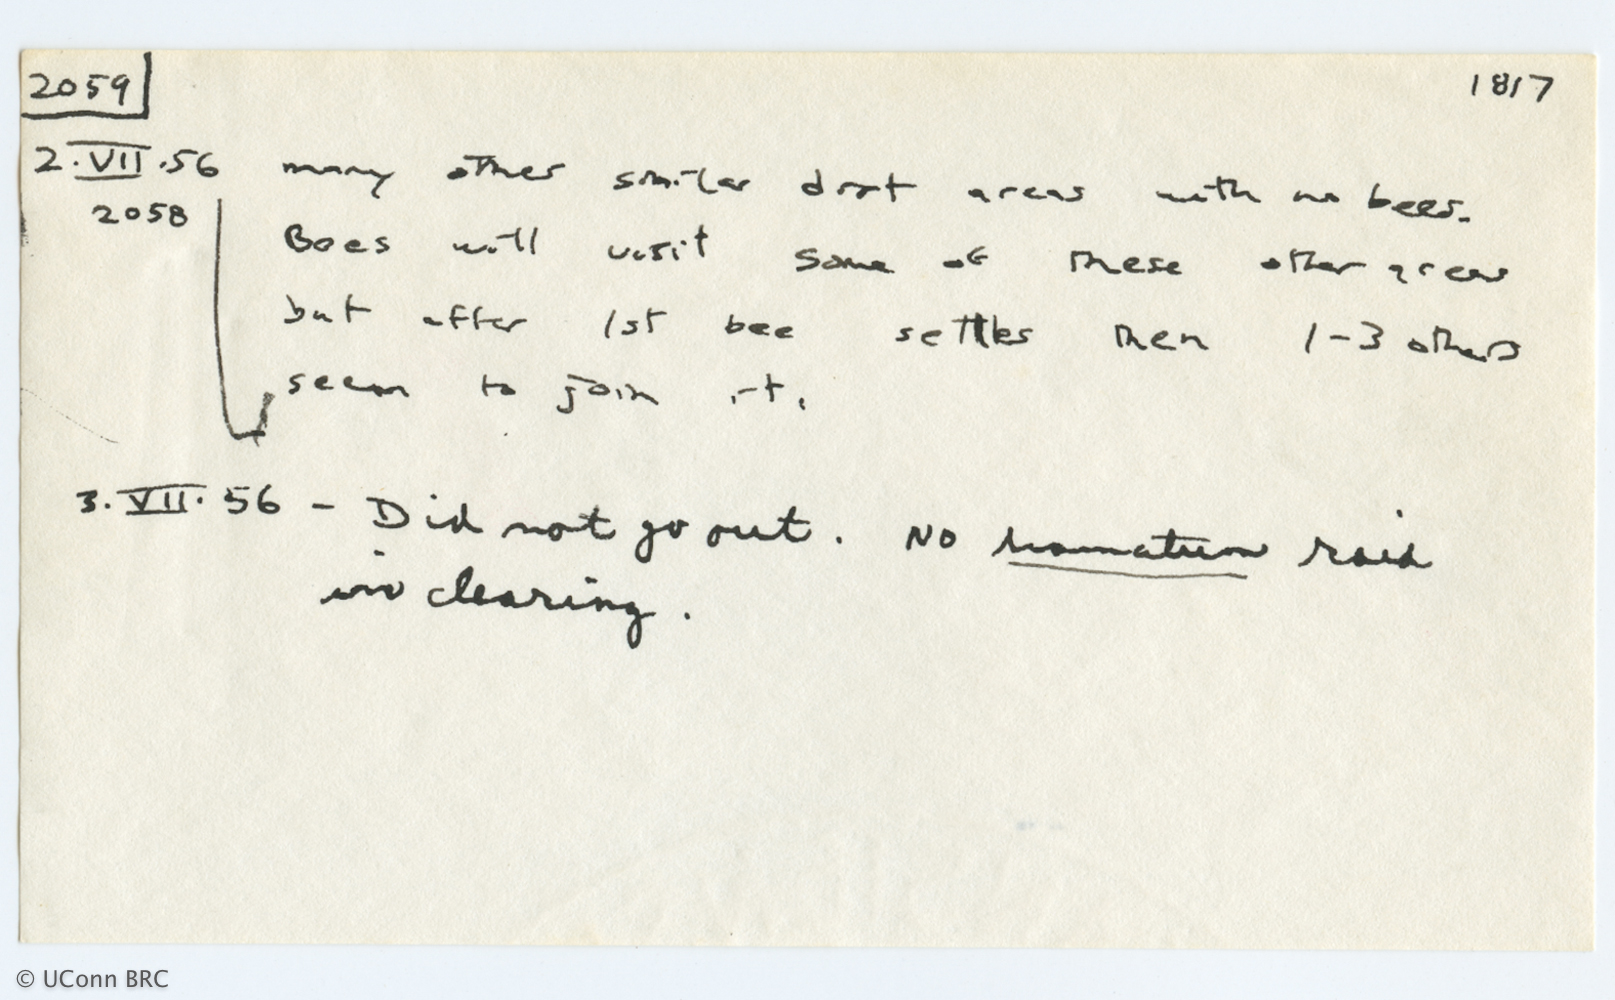 2059
1817
2.VII.56 many other similar dirt areas with no bees.
2058
Bees will visit some of these other areas
but after 1st bee settles then 1-3 others
seem to join it.
3.VII.56 - Did not go out. No hamatum raid
in clearing.
© UConn BRC